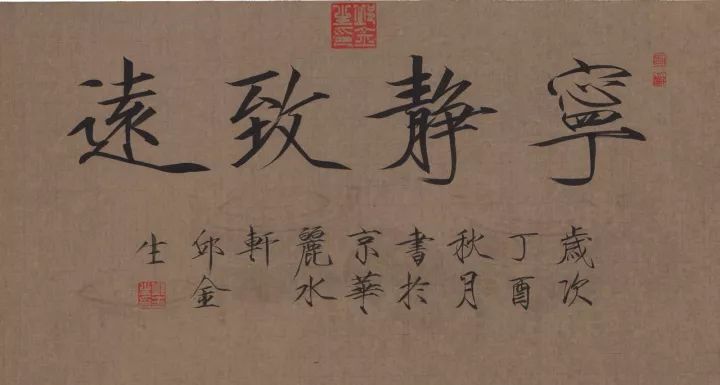 寧靜致遠
歲次
丁酉
秋月
書於
京華
麗水
軒
邱金
生